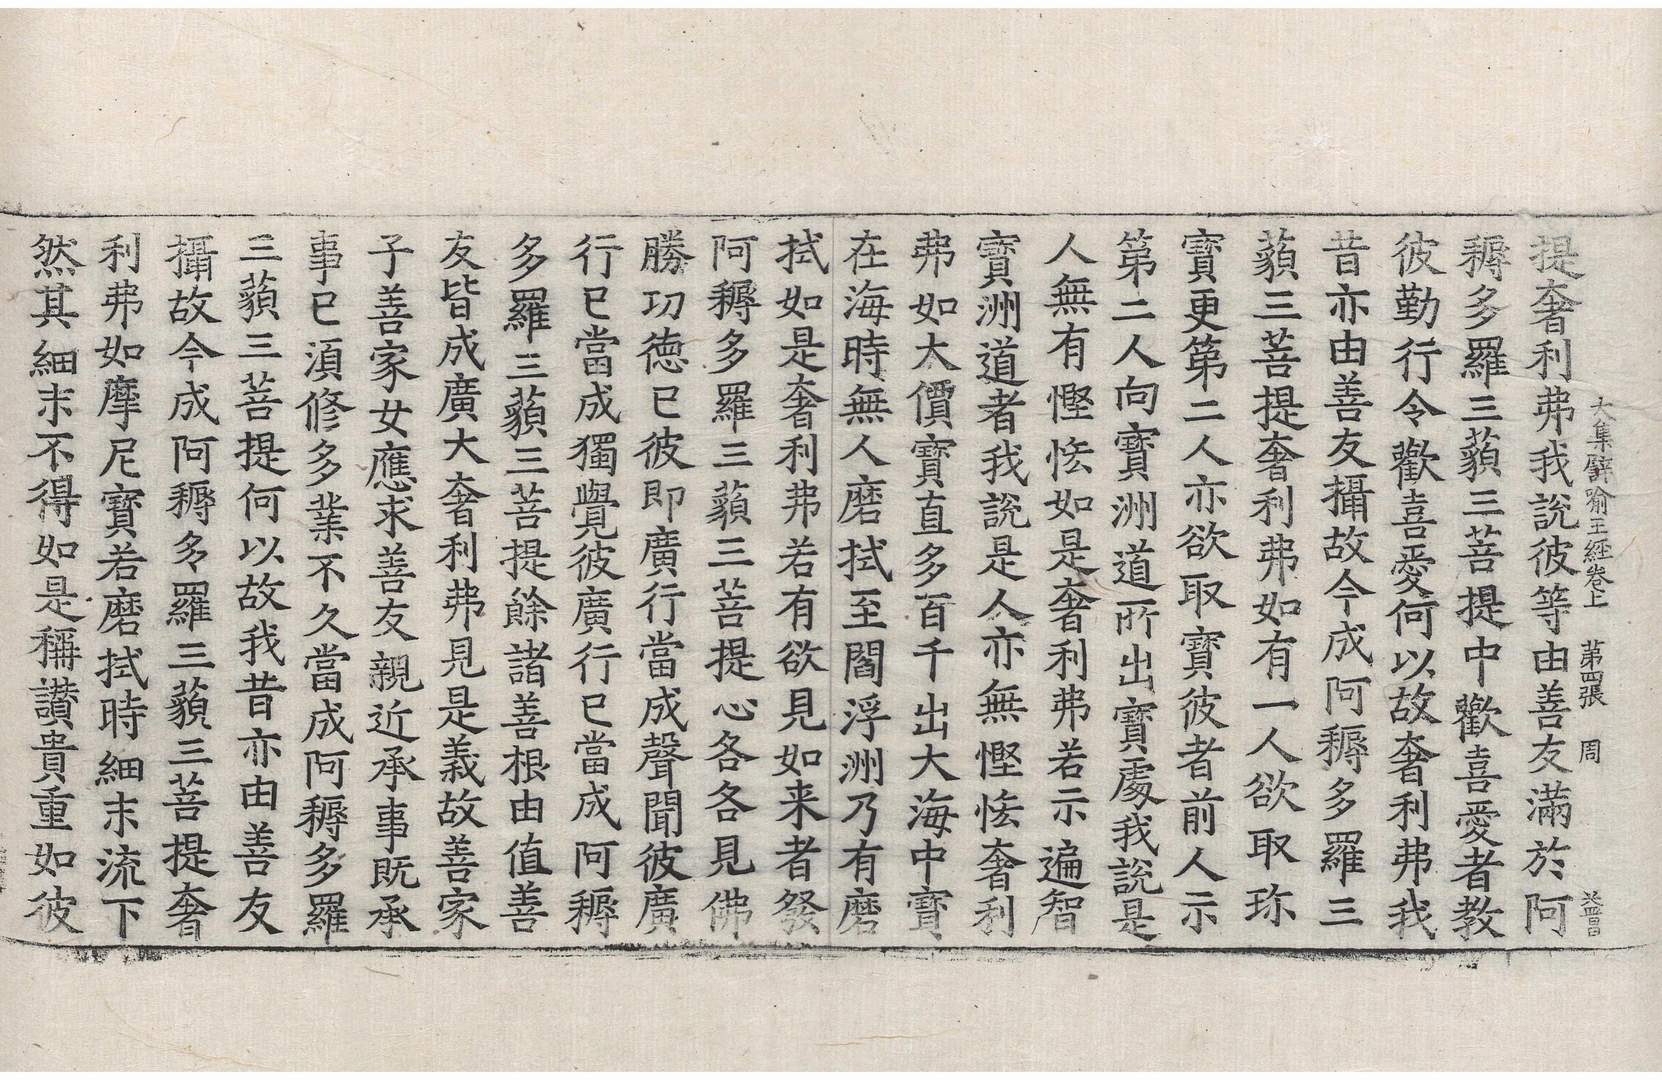 大集譬喻王經卷上 第四張 周
提奢利弗我說彼等由善友滿於阿
耨多羅三藐三菩提中歡喜愛者教
彼勤行令歡喜愛何以故奢利弗我
昔亦由善友攝故今成阿耨多羅三
藐三菩提奢利弗如有一人欲取珎
寶更第二人亦欲取寶彼者前人示
第二人向寶洲道所出寶處我說是
人無有慳怯如是奢利弗若示遍智
寶洲道者我說是人亦無慳怯奢利
弗如大價寶直多百千出大海中寶
在海時無人磨拭至閻浮洲乃有磨
拭如是奢利弗若有欲見如来者發
阿耨多羅三藐三菩提心各各見佛
勝功德已彼即廣行當成聲聞彼廣
行已當成獨覺彼廣行已當成阿耨
多羅三藐三菩提餘諸善根由值善
友皆成廣大奢利弗見是義故善家
子善家女應求善友親近承事既承
事已須修多業不久當成阿耨多羅
三藐三菩提何以故我昔亦由善友
攝故今成阿耨多羅三藐三菩提奢
利弗如摩尼寶若磨拭時細末流下
然其細末不得如是稱讚貴重如彼